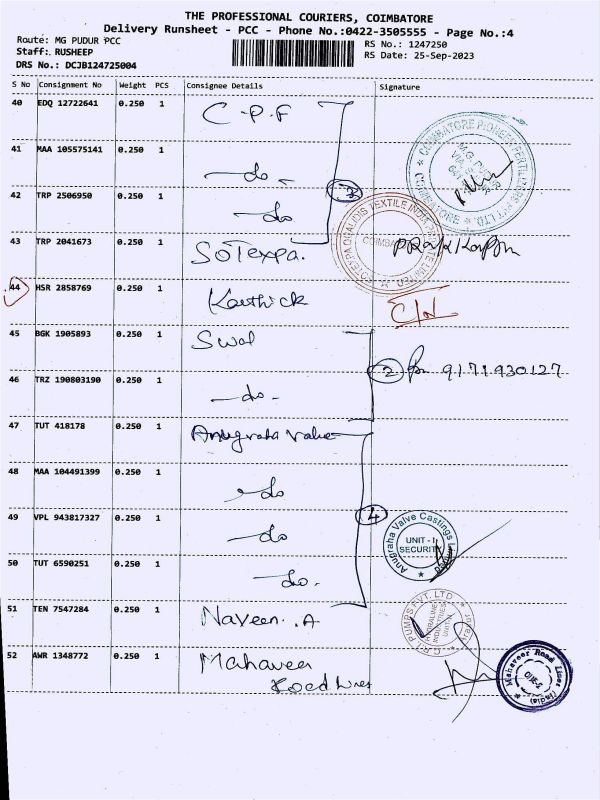 THE PROFESSIONAL COURIERS, COIMBATORE
Delivery Runsheet - PCC - Phone No.:0422-3505555 - Page No.:4
Route: MG PUDUR PCC
RS No.: 1247250
Staff: RUSHEEP
RS Date: 25-Sep-2023
DRS No.: DCJB124725004
S No Consignment No Weight PCS Consignee Details Signature
40 EDQ 12722641 0.250 1 C-P.F
41 MAA 105575141 0.250 1 -do-
42 TRP 2506950 0.250 1 -do
3
COIMBATORE PIONEER FERTILIZERS PVT LTD
COIMBATORE
43 TRP 2041673 0.250 1 SoTexpa.
44 HSR 2858769 0.250 1 Karthick C/N
45 BGK 1905893 0.250 1 Swal
2 9171930127
46 TRZ 190803190 0.250 1 -do-
47 TUT 418178 0.250 1 Anugraha Valve
48 MAA 104491399 0.250 1 -do
49 VPL 943817327 0.250 1 -do
4
Anugraha Valve Castings
UNIT - I
SECURITY
50 TUT 6590251 0.250 1 -do.
51 TEN 7547284 0.250 1 Naveen. .A
C.R.I. PUMPS PVT. LTD
52 AWR 1348772 0.250 1 Mahaveer
Road Lines
Mahaveer Road Lines (India)